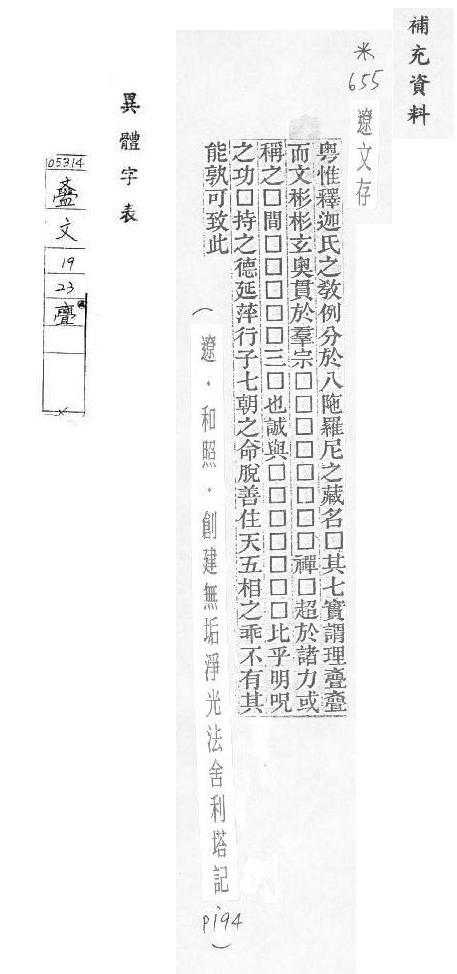 補充資料
米655
遼文存
粤惟釋迦氏之敎例分於八陁羅尼之藏名□其七實謂理亹亹
而文彬彬玄奧貫於羣宗□□□□□□□□禪□超於諸力或
稱之□間□□□□□三□也誠與□□□□□□□比乎明呪
之功□持之德延萍行子七朝之命脫善住天五相之乖不有其
能孰可致此
(遼．和照．創建無垢淨光法舍利塔記 p194)
異體字表
05314
文
19
23